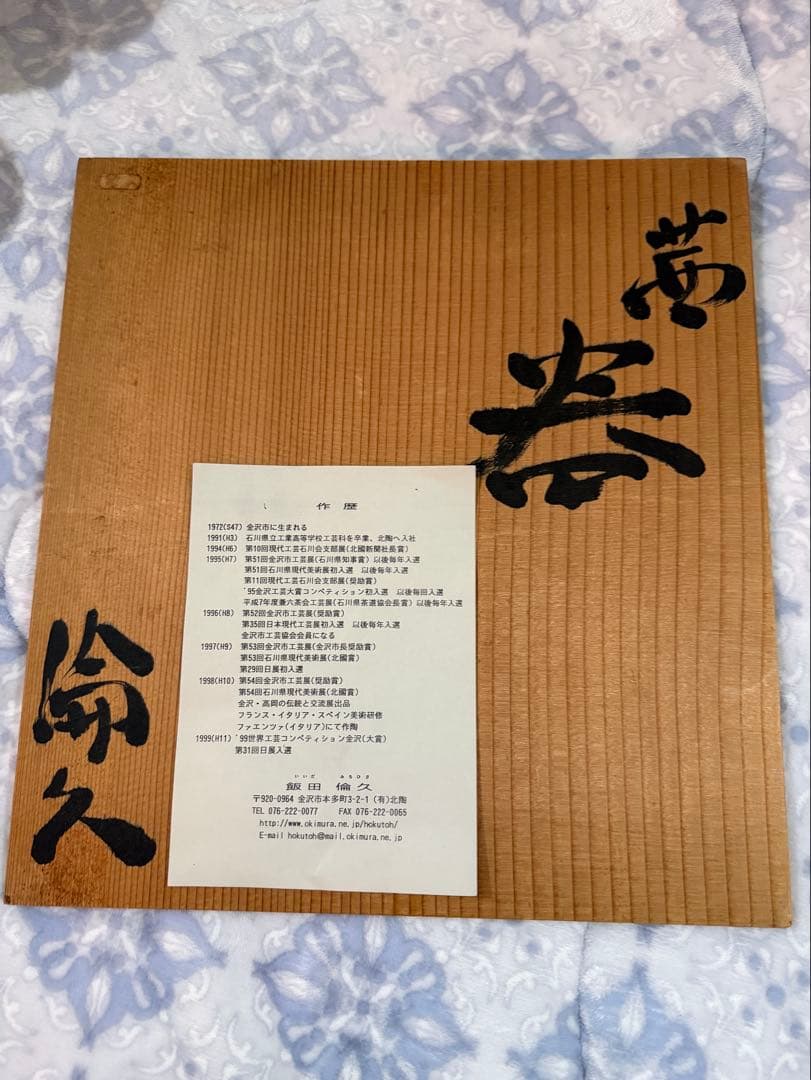 茜
器
倫久
作歴
1972(S47) 金沢市に生まれる
1991(H3) 石川県立工業高等学校工芸科を卒業、北陶へ入社
1994(H6) 第10回現代工芸石川会支部展(北國新聞社長賞)
1995(H7) 第51回金沢市工芸展(石川県知事賞)以後毎年入選
第51回石川県現代美術展初入選 以後毎年入選
第11回現代工芸石川会支部展(奨励賞)
'95金沢工芸大賞コンペティション初入選 以後毎回入選
平成7年度兼六茶会工芸展(石川県茶道協会長賞)以後毎年入選
1996(H8) 第52回金沢市工芸展(奨励賞)
第35回日本現代工芸展初入選 以後毎年入選
金沢市工芸協会会員になる
1997(H9) 第53回金沢市工芸展(金沢市長奨励賞)
第53回石川県現代美術展(北國賞)
第29回日展初入選
1998(H10) 第54回金沢市工芸展(奨励賞)
第54回石川県現代美術展(北國賞)
金沢・高岡の伝統と交流展出品
フランス・イタリア・スペイン美術研修
ファエンツァ(イタリア)にて作陶
1999(H11) '99世界工芸コンペティション金沢(大賞)
第31回日展入選
いいだ みちひさ
飯田 倫久
〒920-0964 金沢市本多町3-2-1 (有)北陶
TEL 076-222-0077 FAX 076-222-0065
http://www.okimura.ne.jp/hokutoh/
E-mail hokutoh@mail.okimura.ne.jp